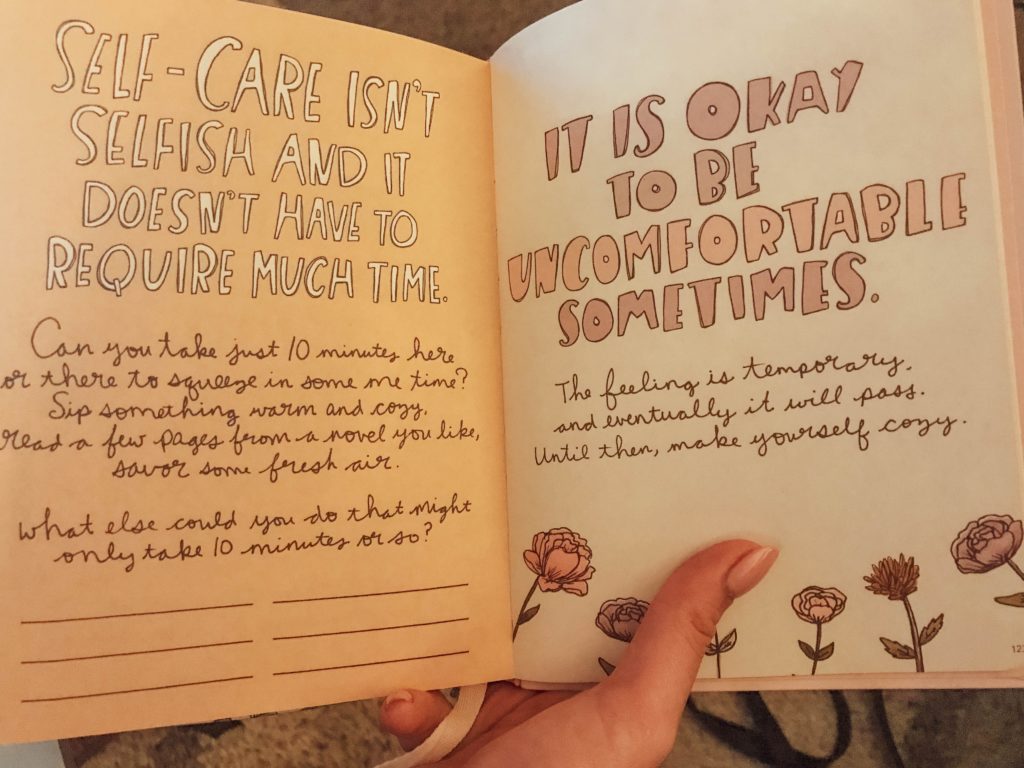 SELF-CARE ISN'T
SELFISH AND IT
DOESN'T HAVE TO
REQUIRE MUCH TIME.
Can you take just 10 minutes here
or there to squeeze in some me time?
Sip something warm and cozy,
read a few pages from a novel you like,
savor some fresh air.
What else could you do that might
only take 10 minutes or so?
IT IS OKAY
TO BE
UNCOMFORTABLE
SOMETIMES.
The feeling is temporary,
and eventually it will pass.
Until then, make yourself cozy.